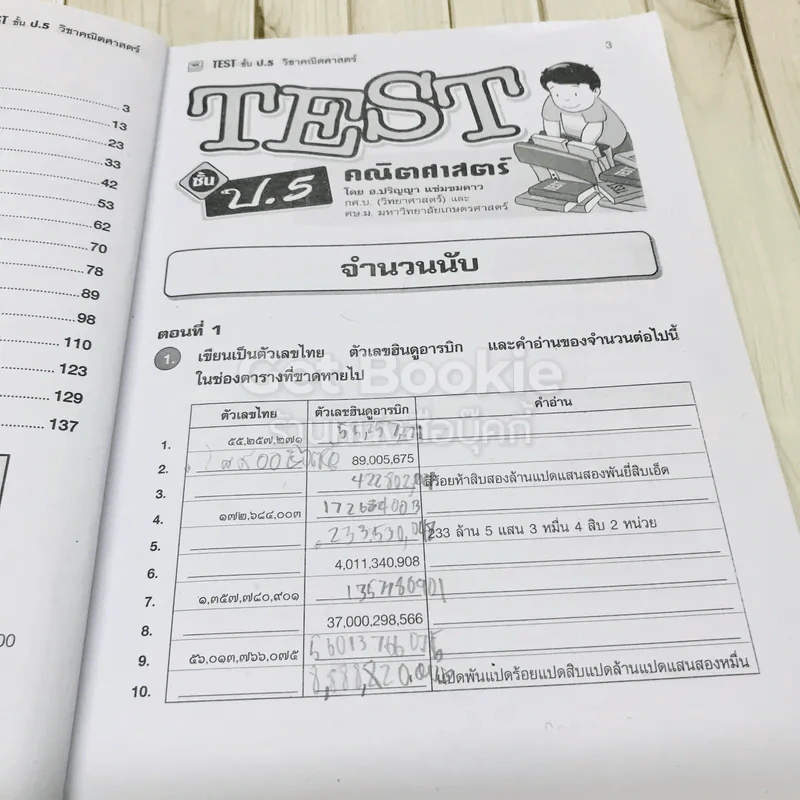 ST ชั้น ป.5 วิชาคณิตศาสตร์
3
13
23
33
42
53
62
70
78
89
98
110
123
129
137
00
3
TEST ชั้น ป.5 วิชาคณิตศาสตร์
TEST
ชั้น ป.5
คณิตศาสตร์
โดย อ.ปริญญา แช่มชมดาว
กศ.บ. (วิทยาศาสตร์) และ
ศษ.ม. มหาวิทยาลัยเกษตรศาสตร์
จำนวนนับ
ตอนที่ 1
1. เขียนเป็นตัวเลขไทย ตัวเลขฮินดูอารบิก และคำอ่านของจำนวนต่อไปนี้
ในช่องตารางที่ขาดหายไป
Get Bookie
ตัวเลขไทย ตัวเลขฮินดูอารบิก คำอ่าน
1. ๕๕,๒๕๗,๒๗๑
2. 89,005,675
3. สี่ร้อยห้าสิบสองล้านแปดแสนสองพันยี่สิบเอ็ด
4. ๑๗๒,๖๘๔,๐๐๓ 172684003
5. 233 ล้าน 5 แสน 3 หมื่น 4 สิบ 2 หน่วย
6. 4,011,340,908
7. ๑,๓๕๗,๗๘๐,๙๐๑
8. 37,000,298,566
9. ๕๖,๐๑๓,๗๖๖,๐๗๕
10. แปดพันแปดร้อยแปดสิบแปดล้านแปดแสนสองหมื่น